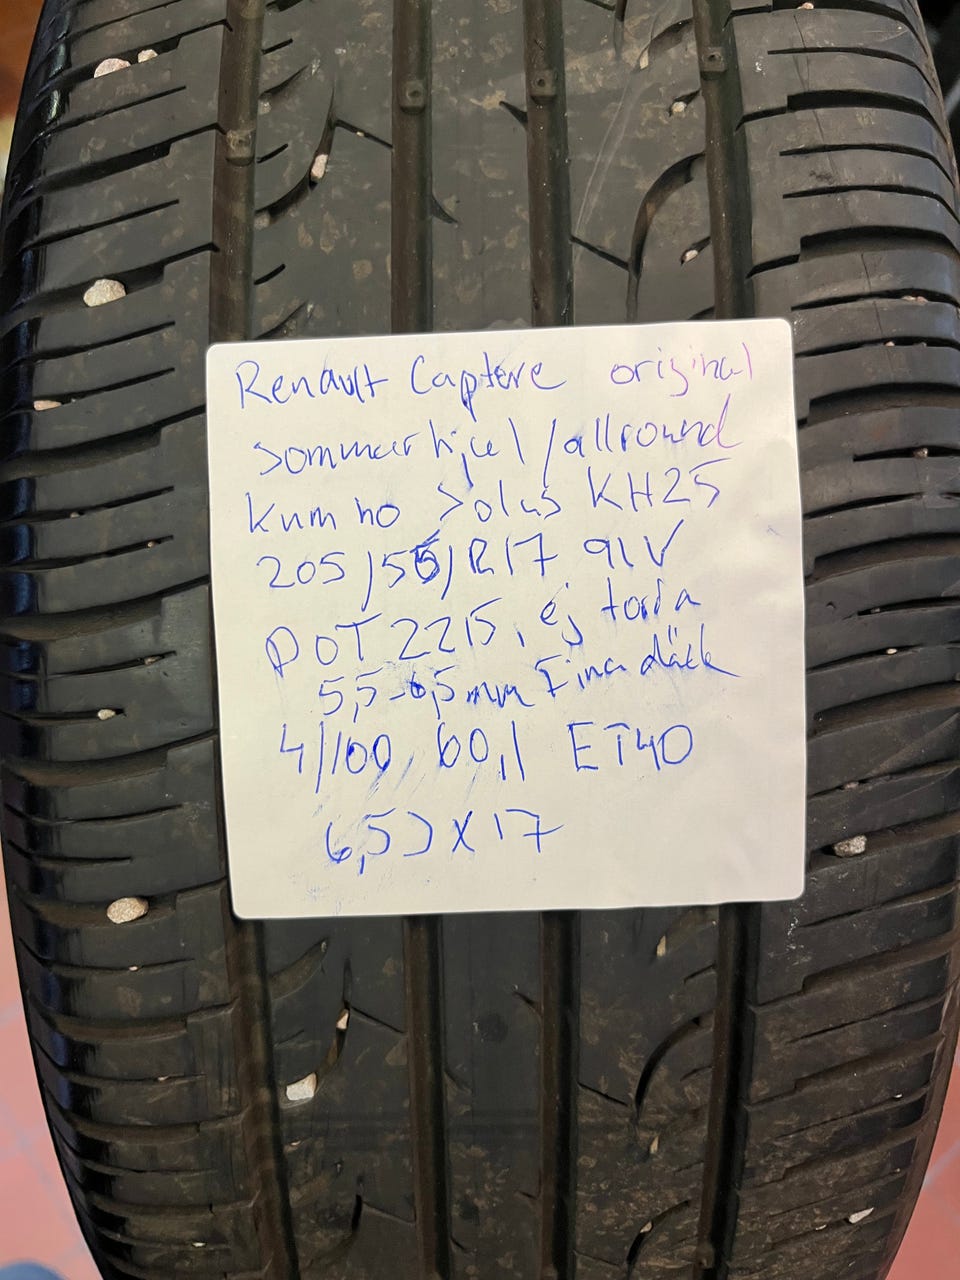 Renault Capture original
sommarhjul/allround
Kumho Solus KH25
205/55/R17 91V
DOT 2215, ej torra
5,5-6,5mm Fina däck
4/100, 60,1 ET40
6,5J X 17